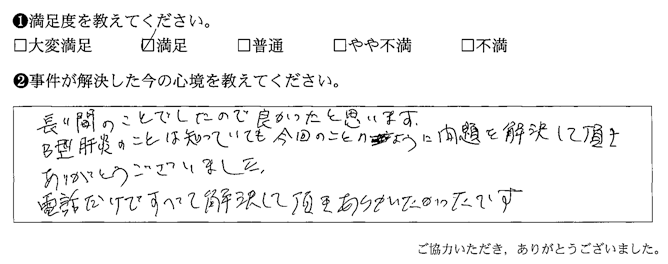 ❶満足度を教えてください。
□大変満足 ☑満足 □普通 □やや不満 □不満
❷事件が解決した今の心境を教えてください。
長い間のことでしたので良かったと思います.
B型肝炎のことは知っていても今回のことのように問題を解決して頂き
ありがとうございました.
電話だけですべて解決して頂きありがたかったです
ご協力いただき，ありがとうございました。